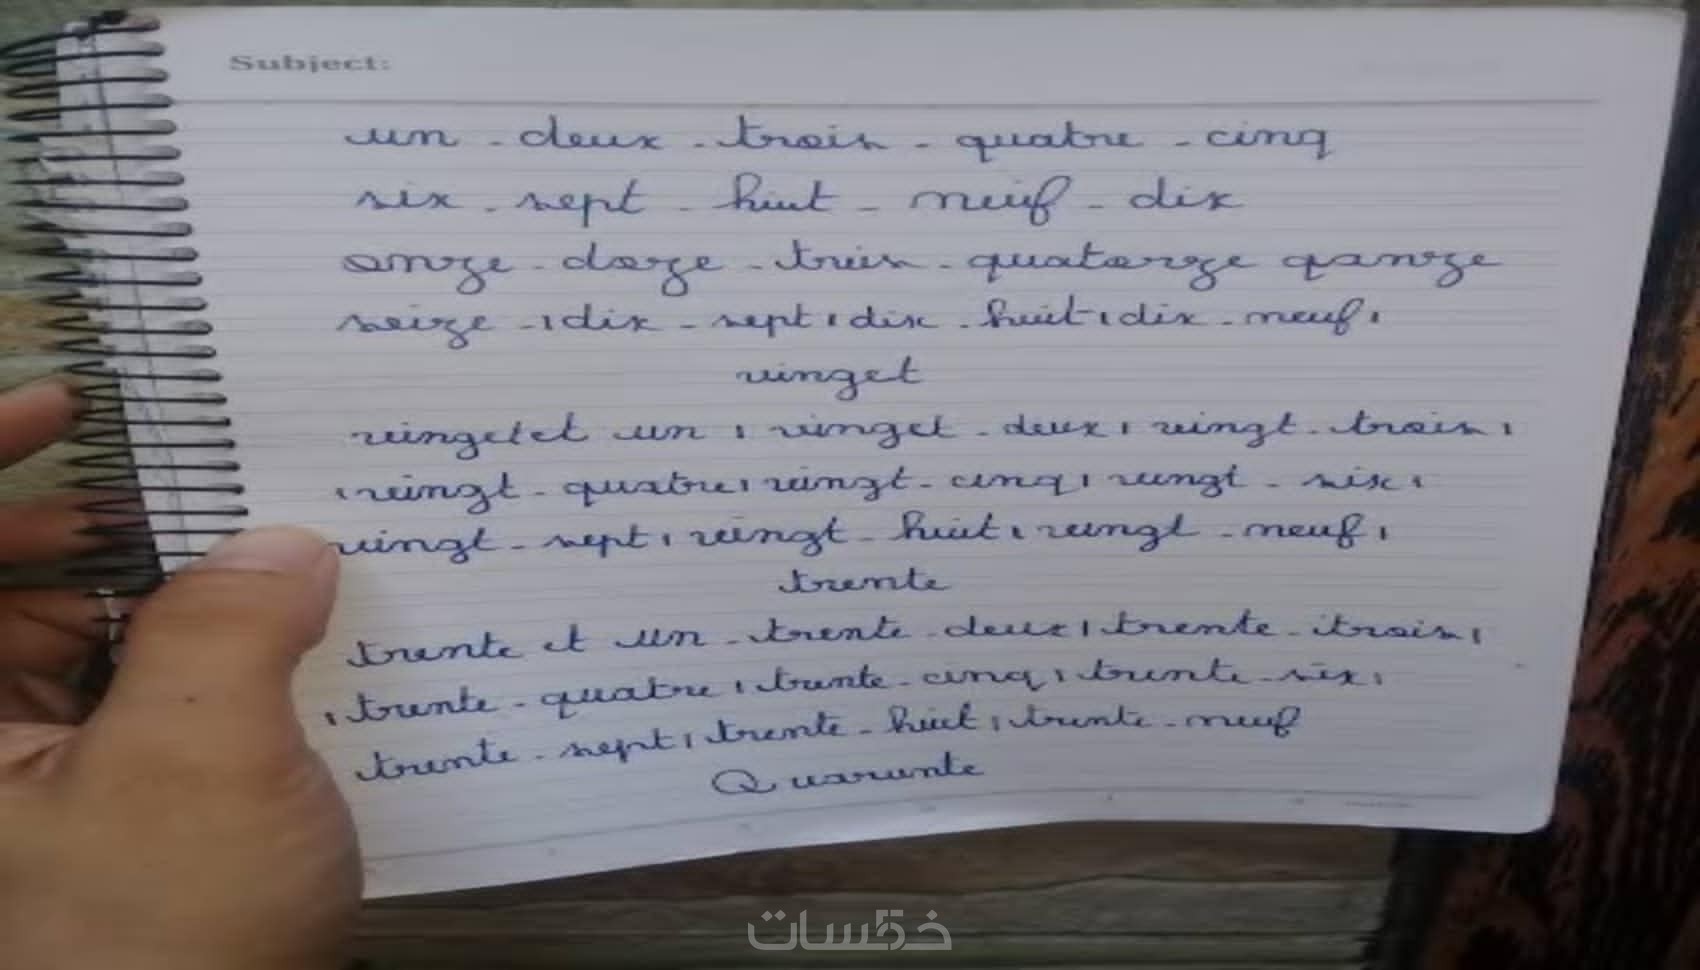 Subject:
un - deux - trois - quatre - cinq
six - sept - huit - neuf - dix
onze - doze - treis - quatorze qanze
seize - , dix - sept , dix - huit , dix - neuf ,
vinget
vinget et un , vinget - deux , vingt - trois ,
, vingt - quatre , vingt - cinq , vingt - six ,
vingt - sept , vingt - huit , vingt - neuf ,
trente
trente et un - trente - deux , trente - trois ,
, trente - quatre , trente - cinq , trente - six ,
trente - sept , trente - huit , trente - neuf
Quarante
خمسات